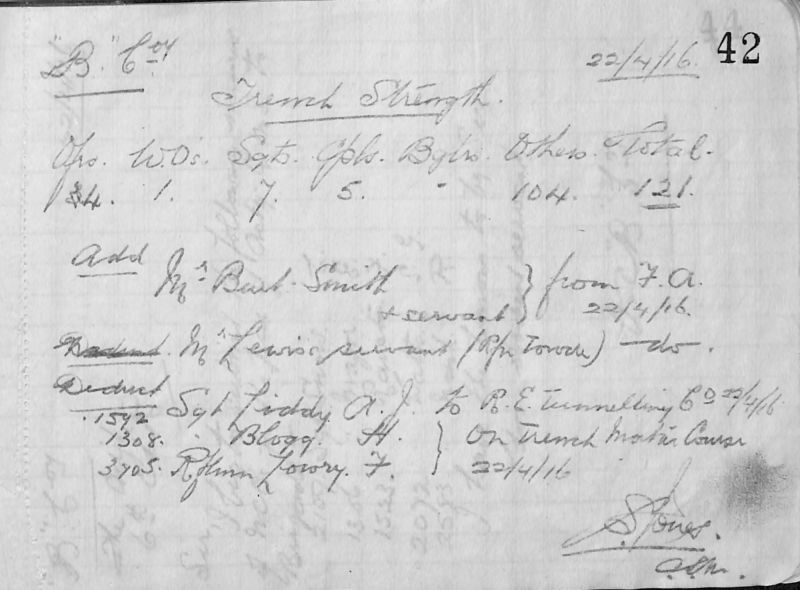 42
"B" Coy 22/4/16.
Trench Strength.
Ofrs. W.Os. Sgts. Cpls. Bglrs. Others. Total.
4. 1. 7. 5. - 104. 121.
Add
Mr Burl. Smith } from F.A.
+ servant } 22/4/16.
Mr Lewis's servant (Rfn Towde) —do—.
Deduct
1592 Sgt Liddy A. J. to R.E. Tunnelling Co 22/4/16
1308. " Blogg. H. } On Trench Mortar Course
3705. Rflmn Lowry. F. } 22/4/16
S Jones.
CSM.